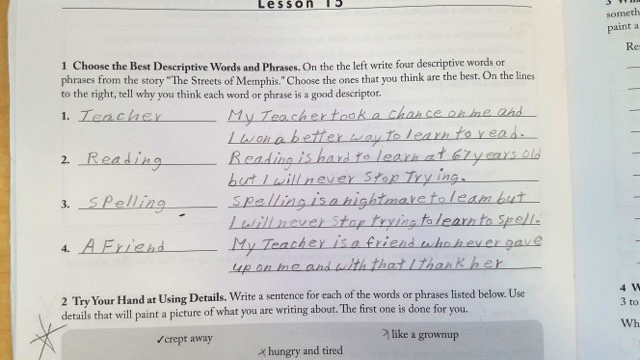 Lesson 15
1 Choose the Best Descriptive Words and Phrases. On the the left write four descriptive words or
phrases from the story "The Streets of Memphis." Choose the ones that you think are the best. On the lines
to the right, tell why you think each word or phrase is a good descriptor.
1. Teacher My Teacher took a chance on me and
I won a better way to learn to read.
2. Reading Reading is hard to learn at 67 years old
but I will never stop Trying.
3. Spelling Spelling is a nightmare to learn but
I will never stop trying to learn to spell.
4. A Friend My Teacher is a friend who never gave
up on me and with that I thank her
2 Try Your Hand at Using Details. Write a sentence for each of the words or phrases listed below. Use
details that will paint a picture of what you are writing about. The first one is done for you.
✓crept away
like a grownup
hungry and tired
someth
paint a
Re
4 W
3 to
Wh